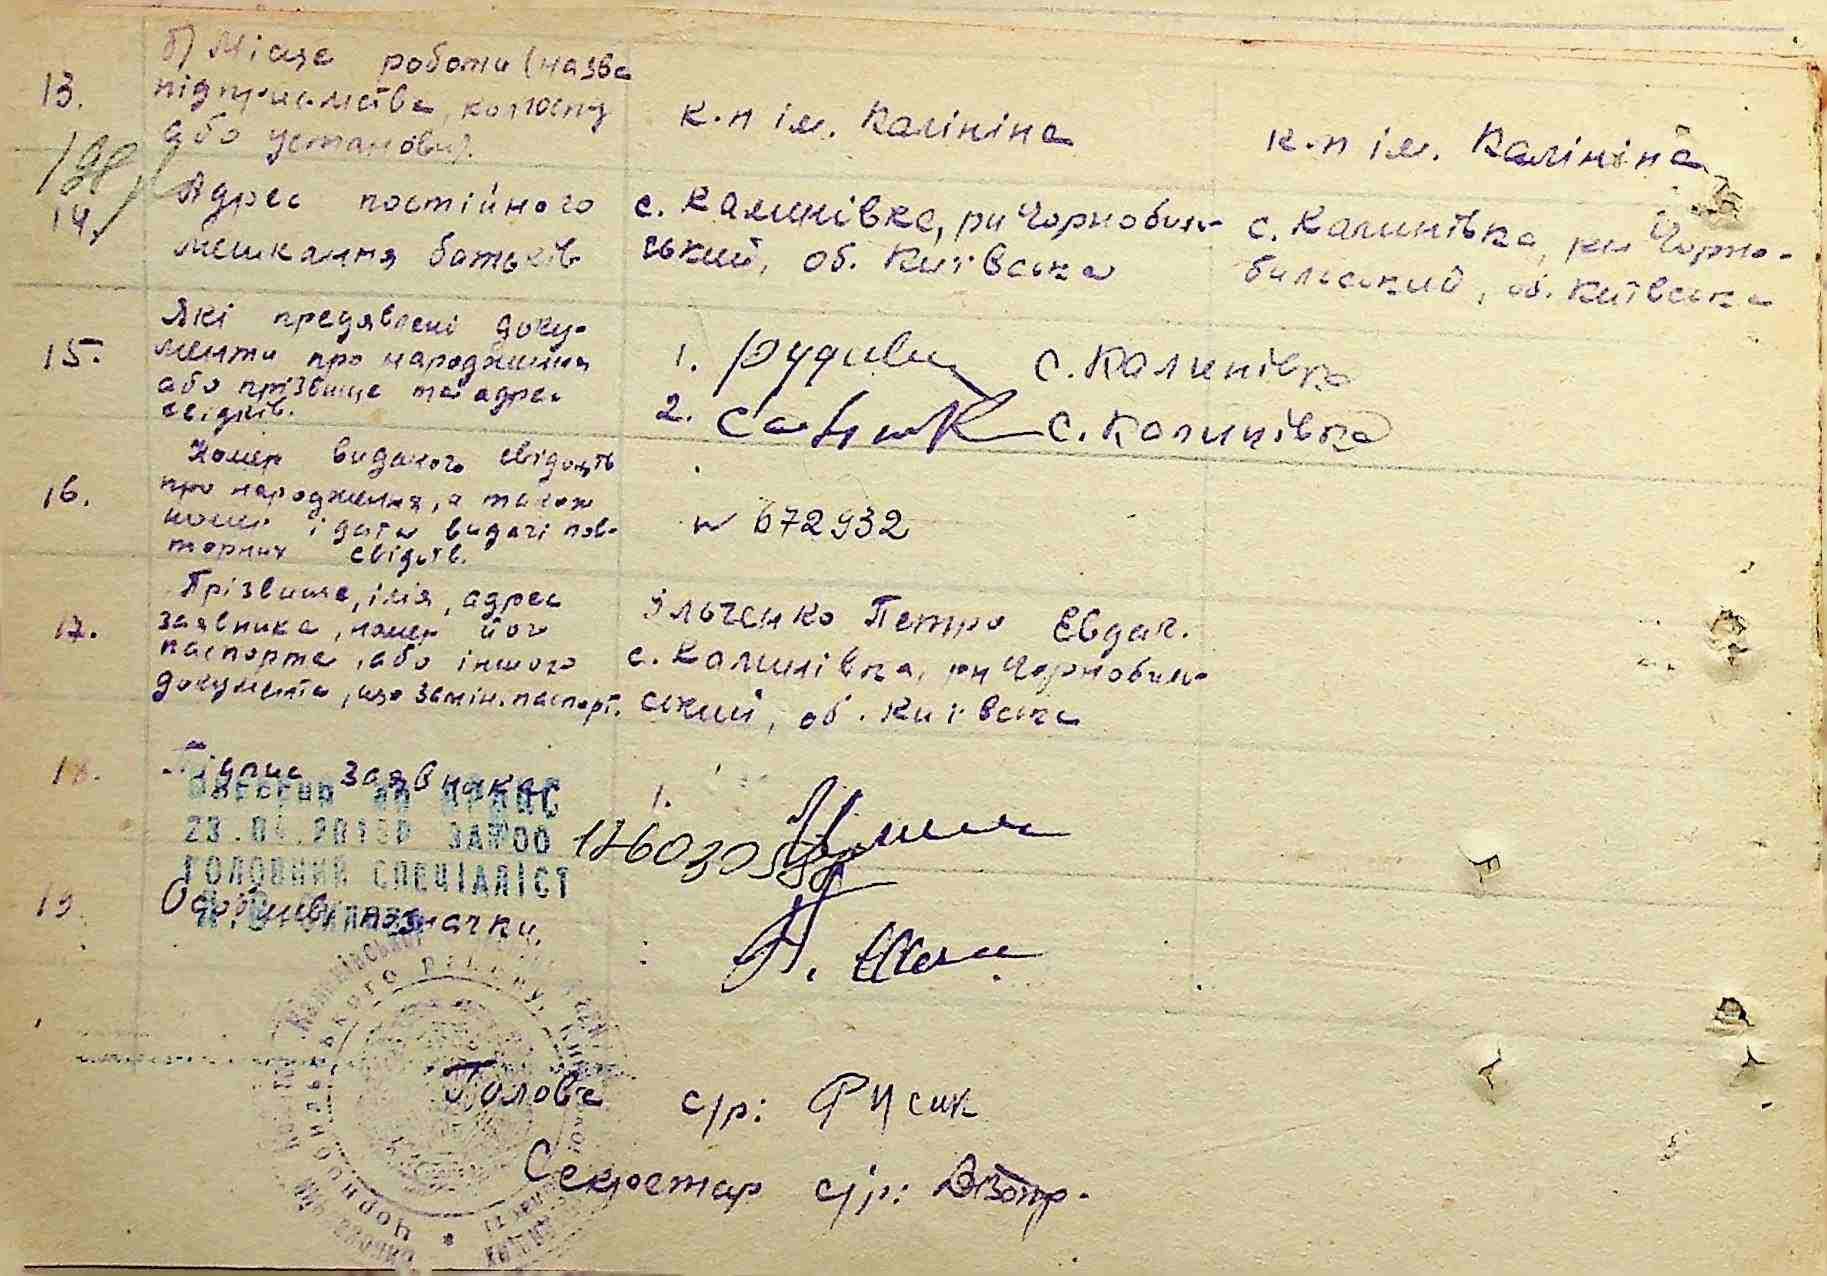 13.
б) Місце роботи (назва
підприємства, колгоспу
або установи).
к-п ім. Калініна
к-п ім. Калініна
198
14.
Адрес постійного
мешкання батьків
с. Калинівка, рн Чорнобиль-
ський, об. Київська
с. Калинівка, рн Чорно-
бильський, об. Київська
15.
Які предявлені доку-
менти про народження
або прізвище та адреса
свідків.
1. с. Калинівка
2. с. Калинівка
16.
Номер виданого свідоцтв
про народження, а також
номер і дата видачі пов-
торних свідоцтв.
N 672932
17.
Прізвище, імя, адрес
заявника, номер його
паспорта, або іншого
документа, що замін. паспорт.
Ільченко Петро Євдак.
с. Калинівка, рн Чорнобиль-
ський, об. Київська
18.
Підпис заявника
1.
ВНЕСЕНИЙ ДО ДРАЦС
23.04. ЗА №00
ГОЛОВНИЙ СПЕЦІАЛІСТ
19.
Особливі позначки.
Голова с/р: Русик
Секретар с/р: